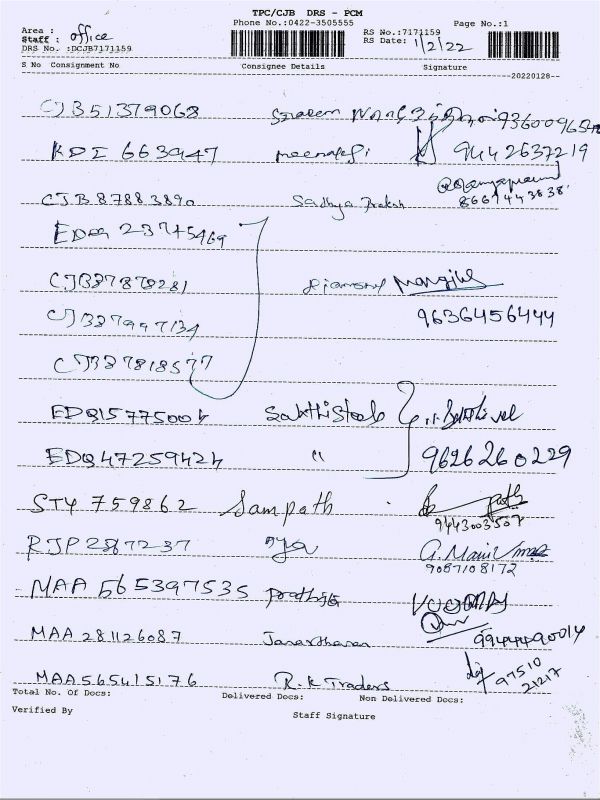 TPC/CJB DRS - PCM
Phone No.:0422-3505555 Page No.:1
Area : office
Staff :
DRS No. :DCJB7171159
RS No.:7171159
RS Date: 1/2/22
S No Consignment No Consignee Details Signature
--20220128--
CJB51379068
KDI 663947 meenakshi 9442637219
CJB 87883890 Sadhya Prakash
EDQ 23745469
CJB87878281 Diamond
CJB87997134 9636456444
CJB87818577
EDQ15775004 Sakthi Steels
EDQ47259424 " 9626260229
STY 759862 Sampath
9443003507
RJP 287237
9087108172
MAA 565397535
MAA 281126087 Janarthanan 9944490014
MAA565415176 R.K Traders 97510 21217
Total No. Of Docs: Delivered Docs: Non Delivered Docs:
Verified By Staff Signature